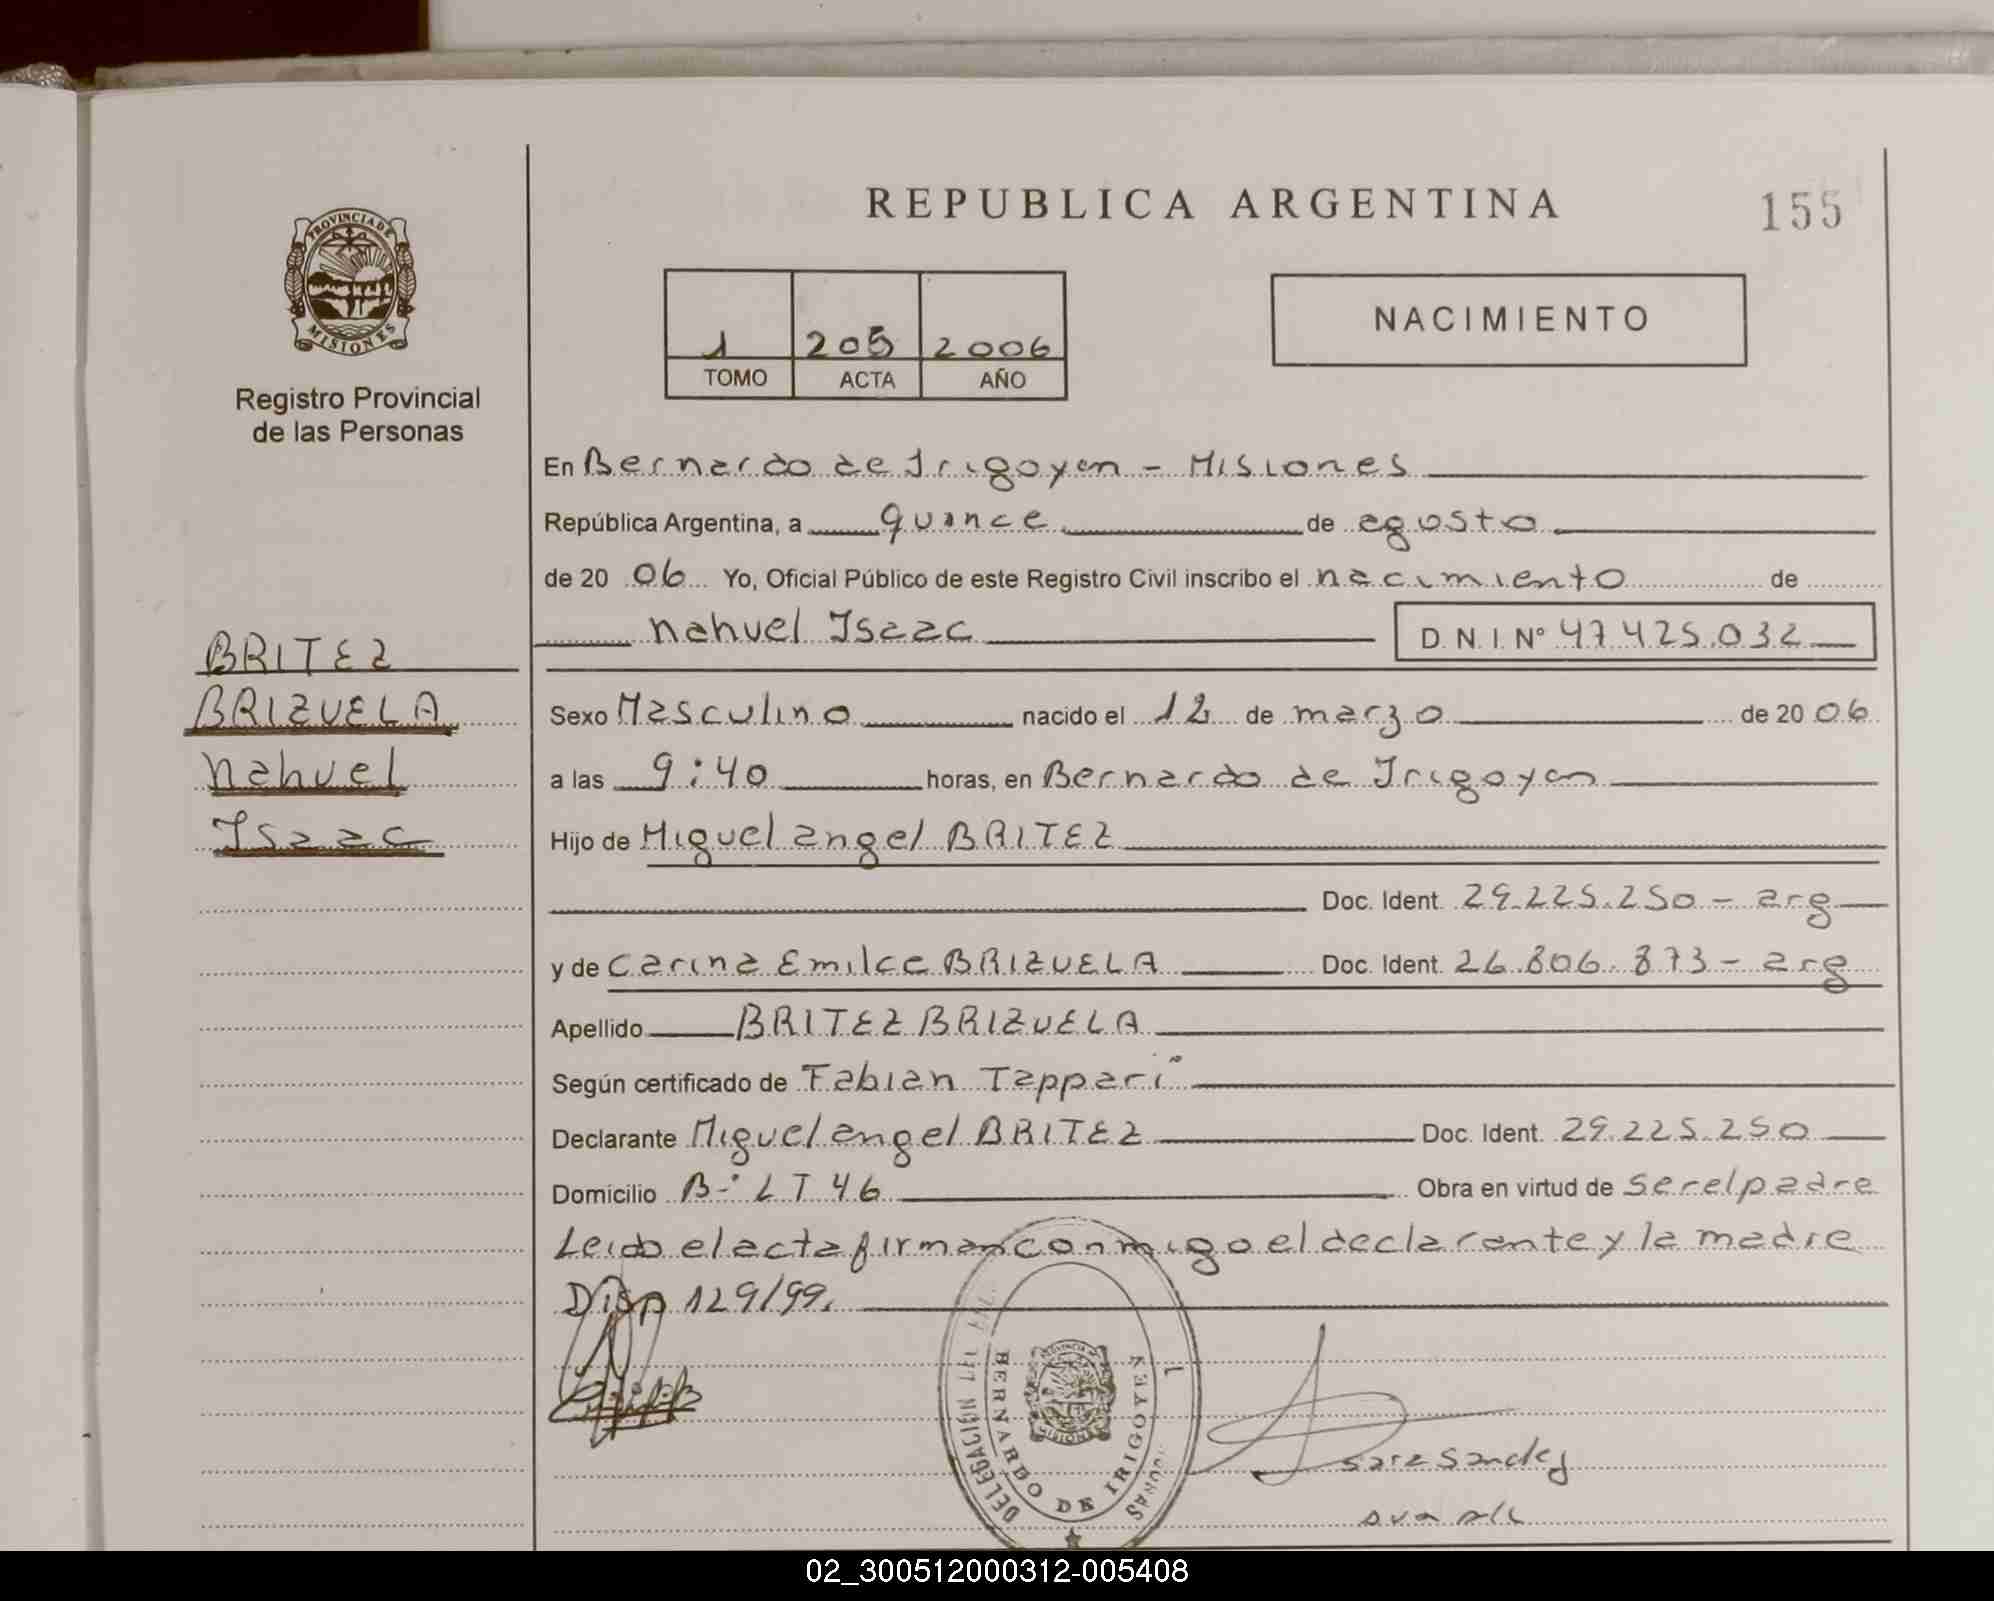 PROVINCIA DE
MISIONES
Registro Provincial
de las Personas
BRITEZ
BRIZUELA
Nahuel
Isaac
REPUBLICA ARGENTINA
155
1 205 2006
TOMO ACTA AÑO
NACIMIENTO
En Bernardo de Irigoyen - Misiones
República Argentina, a quince de agosto
de 20 06 Yo, Oficial Público de este Registro Civil inscribo el nacimiento de
Nahuel Isaac D.N.I. N° 47.425.032
Sexo Masculino nacido el 12 de marzo de 20 06
a las 9:40 horas, en Bernardo de Irigoyen
Hijo de Miguel angel BRITEZ
Doc. Ident. 29.225.250 - arg
y de Carina Emilce BRIZUELA Doc. Ident. 26.806.873 - arg
Apellido BRITEZ BRIZUELA
Según certificado de Fabian Tappari
Declarante Miguel angel BRITEZ Doc. Ident. 29.225.250
Domicilio B-° LT 46 Obra en virtud de ser el padre
Leido el acta firman conmigo el declarante y la madre
Disp 129/99.
DELEGACION
BERNARDO DE IRIGOYEN
MISIONES
02_300512000312-005408